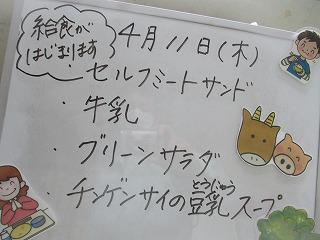 給食が
はじまります
4月11日(木)
セルフミートサンド
・牛乳
・グリーンサラダ
・チンゲンサイの豆乳スープ
とうにゅう